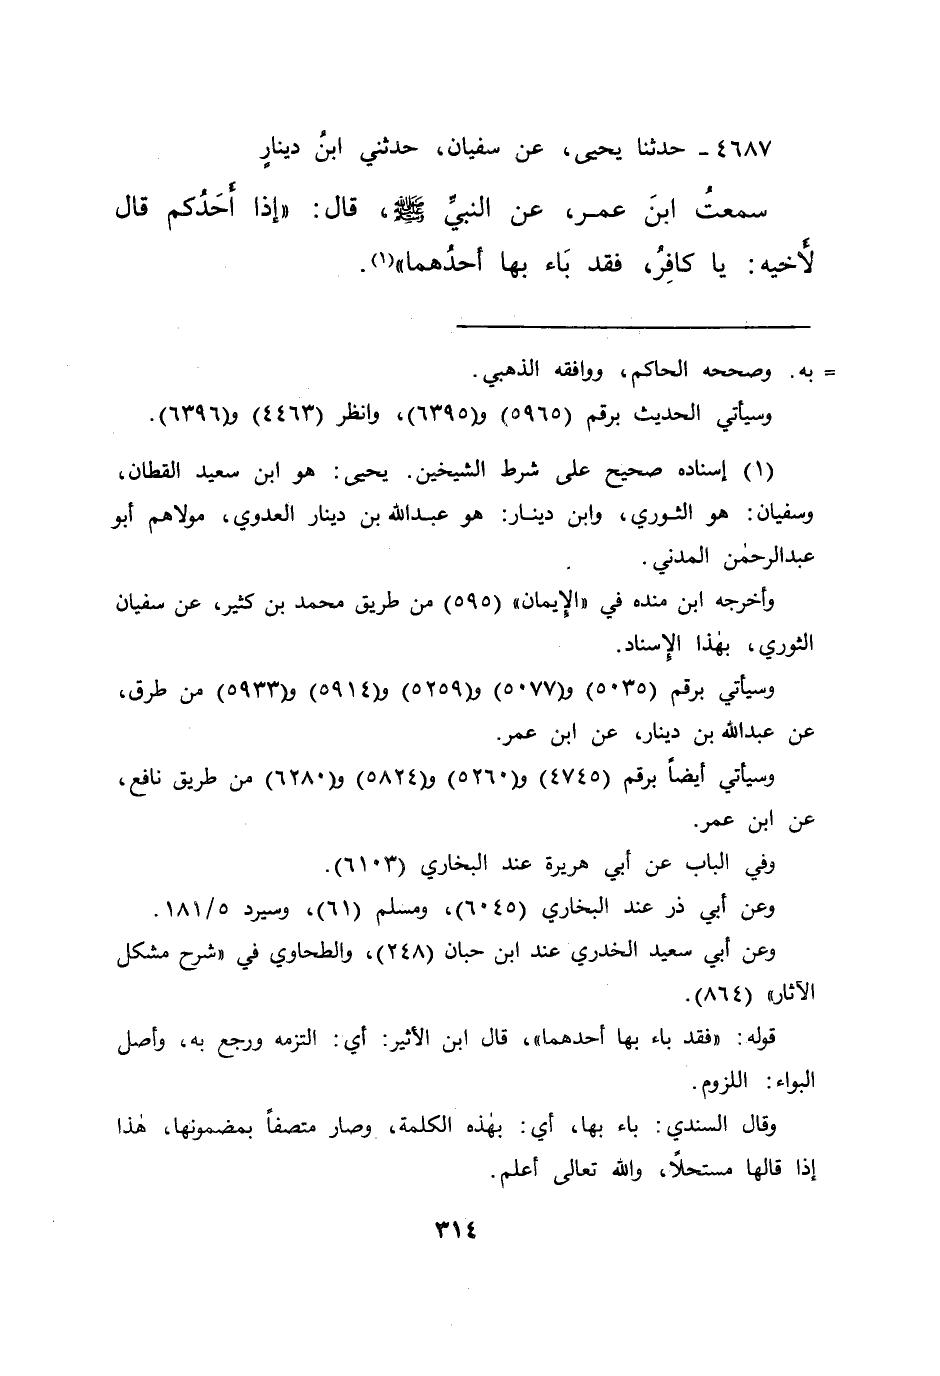 ٤٦٨٧ ـ حدثنا يحيى، عن سفيان، حدثني ابنُ دينارٍ
سمعتُ ابنَ عمـر، عن النبيِّ ﷺ، قال: «إذا أَحَدُكم قال
لأَخيه: يا كافِرُ، فقد بَاء بها أحدُهما»(١).
= به. وصححه الحاكم، ووافقه الذهبي.
وسيأتي الحديث برقم (٥٩٦٥) و(٦٣٩٥)، وانظر (٤٤٦٣) و(٦٣٩٦).
(١) إسناده صحيح على شرط الشيخين. يحيى: هو ابن سعيد القطان،
وسفيان: هو الثـوري، وابن دينـار: هو عبـدالله بن دينار العدوي، مولاهم أبو
عبدالرحمٰن المدني.
وأخرجه ابن منده في «الإيمان» (٥٩٥) من طريق محمد بن كثير، عن سفيان
الثوري، بهٰذا الإسناد.
وسيأتي برقم (٥٠٣٥) و(٥٠٧٧) و(٥٢٥٩) و(٥٩١٤) و(٥٩٣٣) من طرق،
عن عبدالله بن دينار، عن ابن عمر.
وسيأتي أيضاً برقم (٤٧٤٥) و(٥٢٦٠) و(٥٨٢٤) و(٦٢٨٠) من طريق نافع،
عن ابن عمر.
وفي الباب عن أبي هريرة عند البخاري (٦١٠٣).
وعن أبي ذر عند البخاري (٦٠٤٥)، ومسلم (٦١)، وسيرد ١٨١/٥.
وعن أبي سعيد الخدري عند ابن حبان (٢٤٨)، والطحاوي في «شرح مشكل
الآثار» (٨٦٤).
قوله: «فقد باء بها أحدهما»، قال ابن الأثير: أي: التزمه ورجع به، وأصل
البواء: اللزوم.
وقال السندي: باء بها، أي: بهٰذه الكلمة، وصار متصفاً بمضمونها، هٰذا
إذا قالها مستحلاً، والله تعالى أعلم.
٣١٤